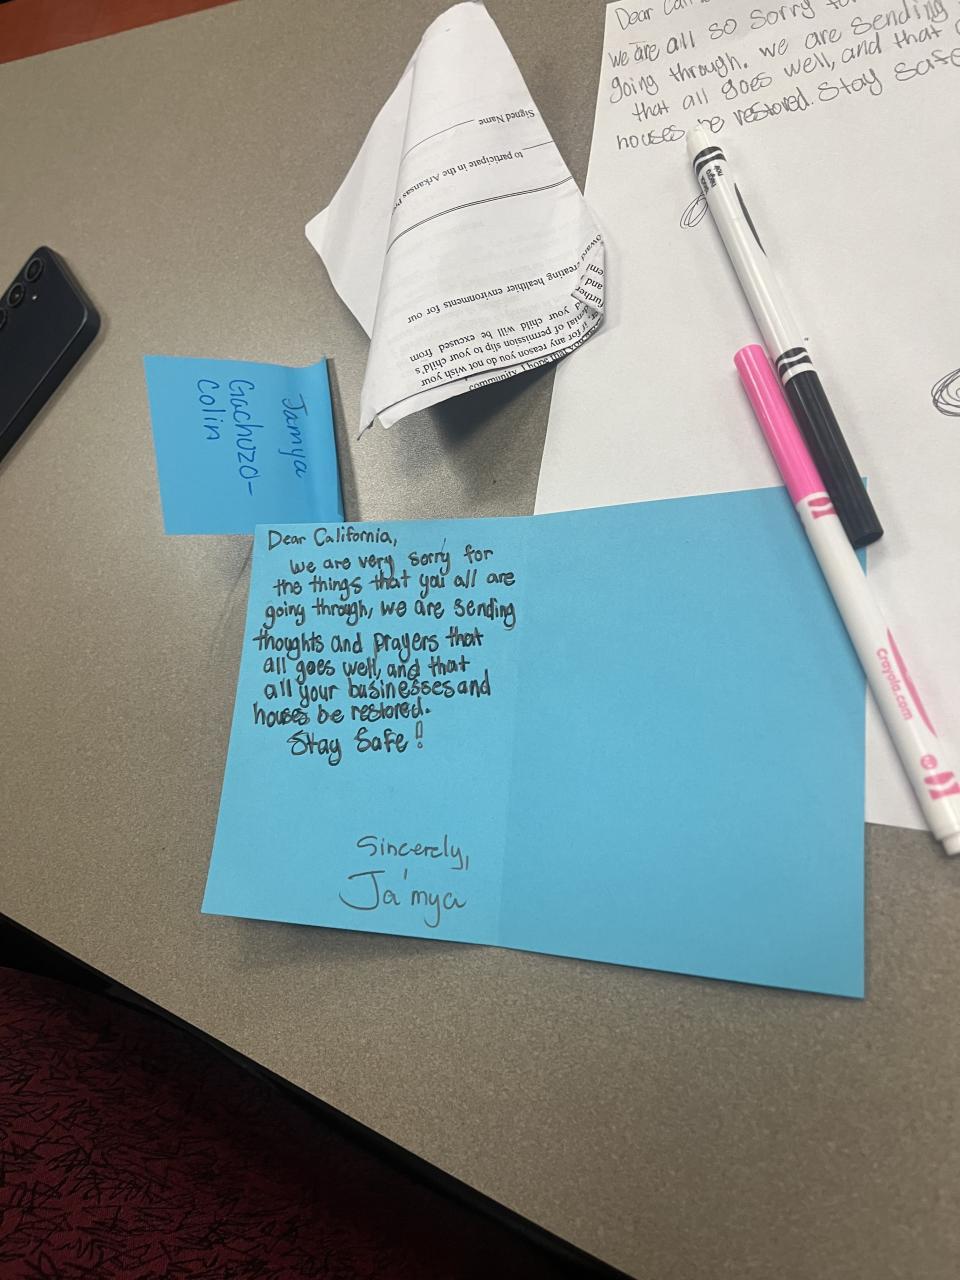 Dear
we are all so sorry
going through. we are sending
that all goes well, and that
houses be restored. Stay Safe
Signed Name
to participate in the Arkansas
creating healthier environments for our
your child will be excused from
denial of permission slip to your child's
if for any reason you do not wish your
community. I hope that you
Jamya
Gachuzo-
Colin
Dear California,
we are very sorry for
the things that you all are
going through, we are sending
thoughts and prayers that
all goes well, and that
all your businesses and
houses be restored.
Stay Safe!
Sincerely,
Ja'mya
Crayola.com